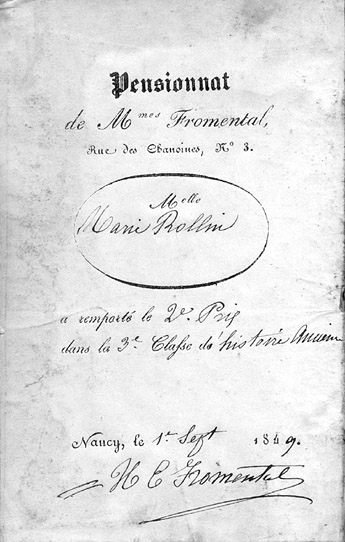 Pensionnat
de M^mes Fromental,
Rue des Chanoines, N° 3.
M^elle
Marie Rollin
a remporté le 2e. Prix
dans la 3e. Classe de histoire Ancienne
Nancy, le 1er Sept 1849.
H C Fromental